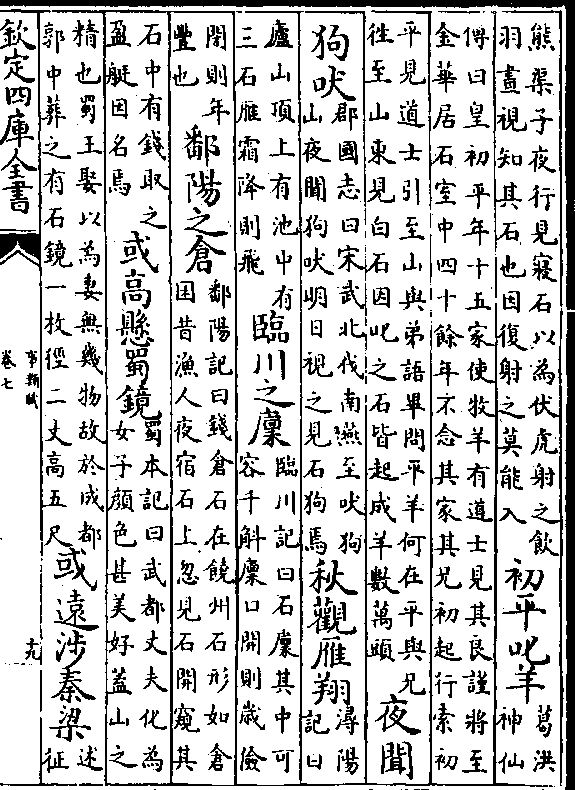 熊渠子夜行見寢石以為伏虎射之飲
羽晝視知其石也因復射之莫能入
初平叱羊
葛洪
神仙
傅曰皇初平年十五家使牧羊有道士見其良謹將至
金華居石室中四十餘年不念其家其兄初起行索初
平見道士引至山與弟語畢問平羊何在平與兄
徃至山東見白石因叱之石皆起成羊數萬頭
夜聞
狗吠
郡國志曰宋武北伐南燕至吠狗
山夜聞狗吠明日視之見石狗焉
秋觀雁翔
潯陽
記曰
廬山頂上有池中有
三石雁霜降則飛
臨川之廩
臨川記曰石廩其中可
容千斛廩口開則歲儉
閉則年
豐也
鄱陽之倉
鄱陽記曰錢倉石在饒州石形如倉
囷昔漁人夜宿石上忽見石開窺其
石中有錢取之
盈艇因名焉
或高懸蜀鏡
蜀本記曰武都丈夫化為
女子顔色甚美好蓋山之
精也蜀王娶以為妻無幾物故於成都
郭中葬之有石鏡一枚徑二丈高五尺
或遠涉秦梁
述
征
欽定四庫全書
事類賦
卷七
十九